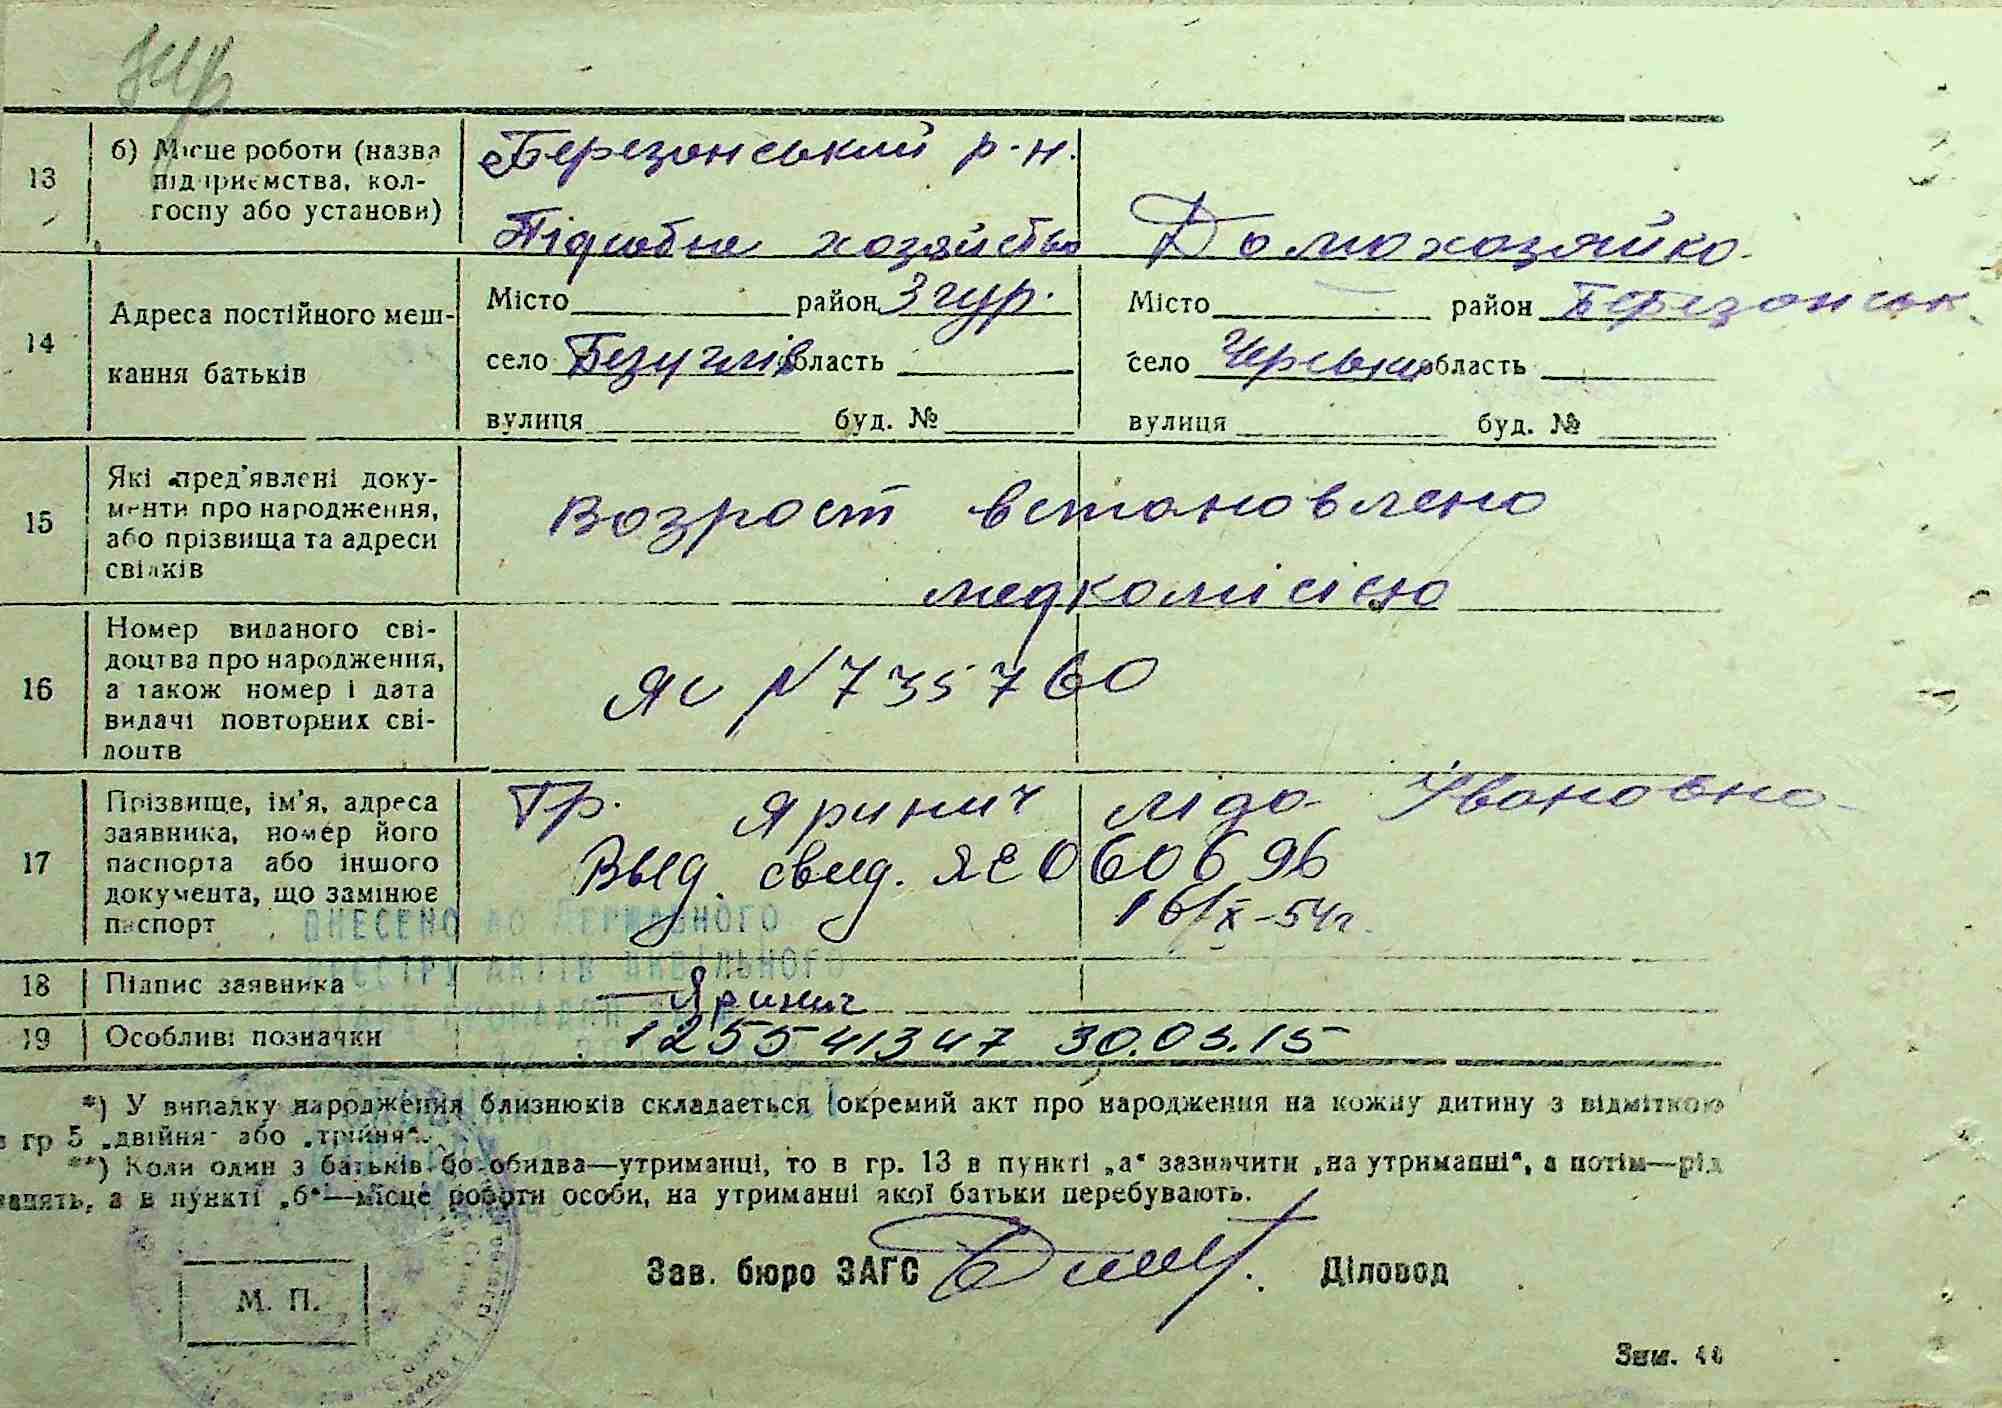 13
б) Місце роботи (назва
підприємства, кол-
госпу або установи)
Березанський р-н.
Підсобне хозяйство
Домохозяйка
14
Адреса постійного меш-
кання батьків
Місто район Згур.
село Безуглів область
вулиця буд. №
Місто район Березанськ
село область
вулиця буд. №
15
Які пред'явлені доку-
менти про народження,
або прізвища та адреси
свідків
Возраст встановлено
медкомісією
16
Номер виданого сві-
доцтва про народження,
а також номер і дата
видачі повторних сві-
доцтв
ЯС N 735760
17
Прізвище, ім'я, адреса
заявника, номер його
паспорта або іншого
документа, що замінює
паспорт
Гр. Яринич Ліда Івановна
Выд. свид. ЯЕ 060696
16/X-54г.
ВНЕСЕНО ДО ДЕРЖАВНОГО
РЕЄСТРУ АКТІВ ЦИВІЛЬНОГО
18
Підпис заявника
Яринич
19
Особливі позначки
125541347 30.03.15
*) У випадку народження близнюків складається окремий акт про народження на кожну дитину з відміткою
в гр 5 „двійня" або „трійня".
**) Коли один з батьків бо обидва—утриманці, то в гр. 13 в пункті „а" зазначити „на утриманні", а потім—рід
занять, а в пункті „б"—місце роботи особи, на утриманні якої батьки перебувають.
М. П.
Зав. бюро ЗАГС
Діловод
Зам.